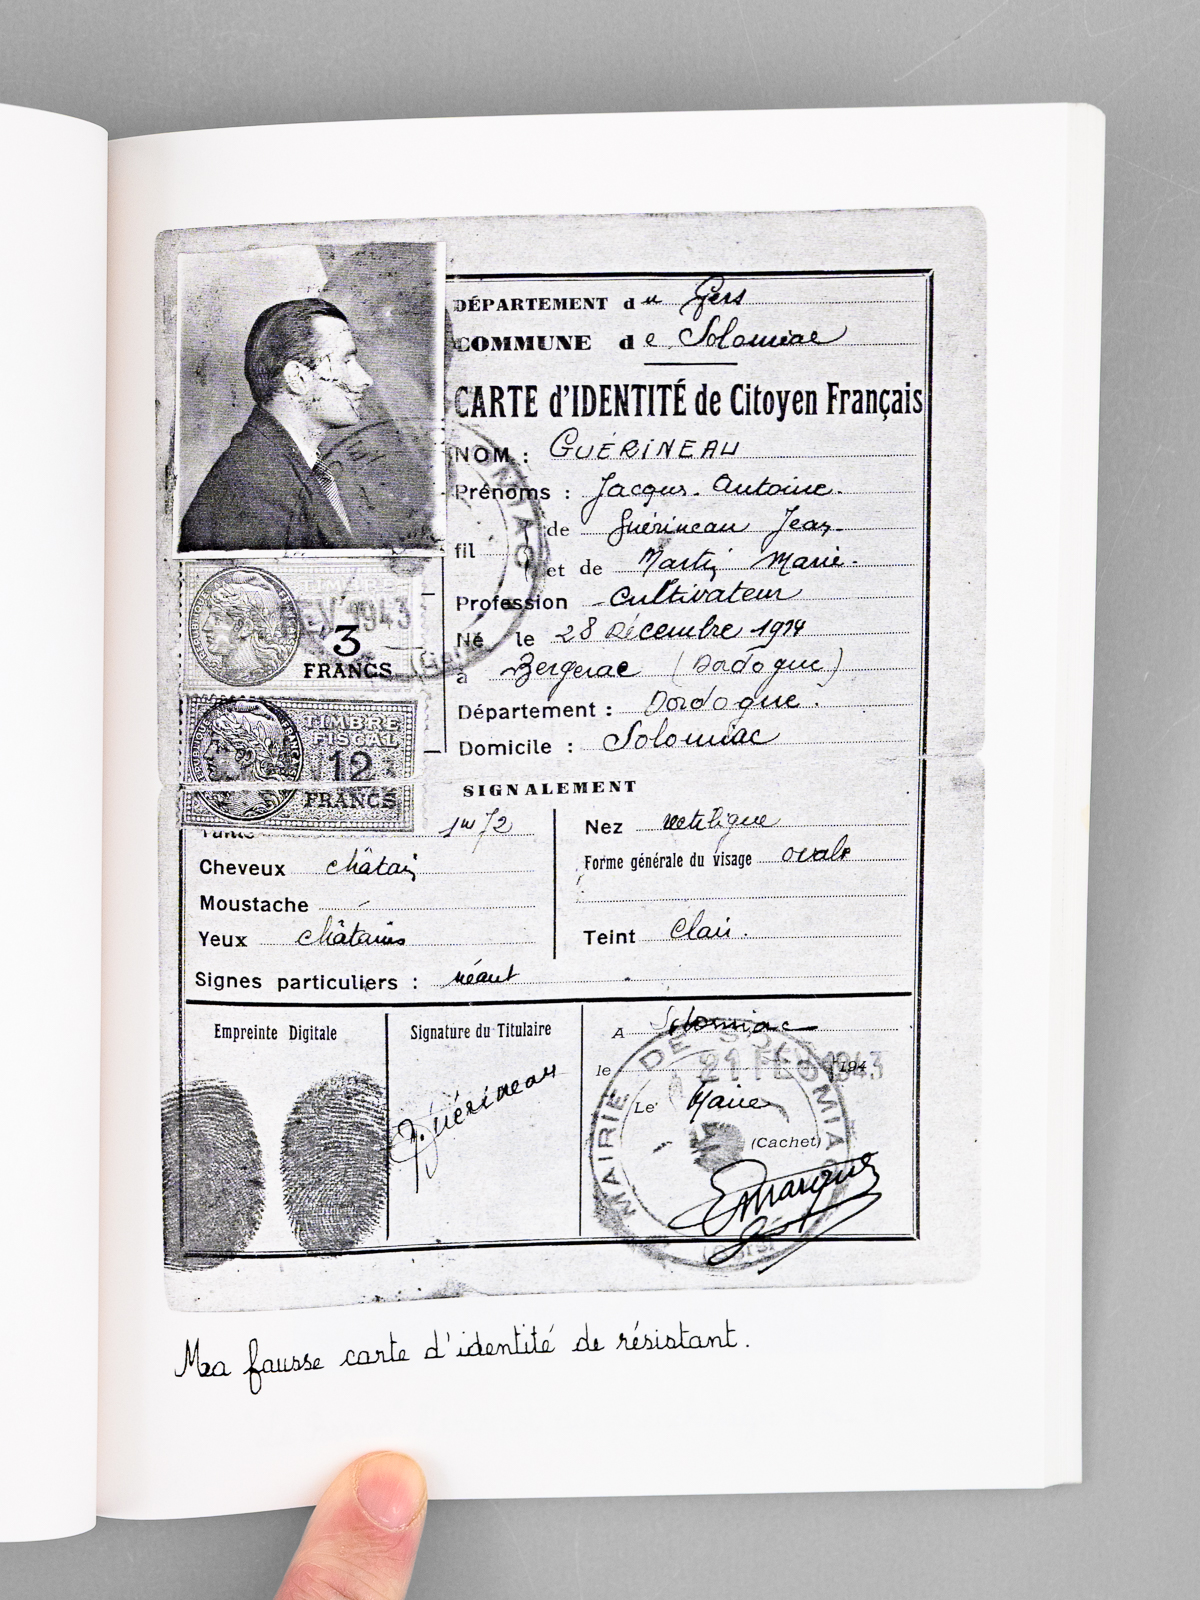 DÉPARTEMENT du Gers
COMMUNE de Solomiac
CARTE d'IDENTITÉ de Citoyen Français
NOM : GUÉRINEAU
Prénoms : Jacques. Antoine.
fil de Guérineau Jean
et de Martin Marie.
Profession Cultivateur
Né le 28 Décembre 1914
à Bergerac (Dordogne)
Département : Dordogne.
Domicile : Solomiac
TIMBRE
1943
3
FRANCS
TIMBRE
FISCAL
12
FRANCS
SIGNALEMENT
Taille 1m72
Cheveux châtain
Moustache -
Yeux châtains
Nez rectiligne
Forme générale du visage ovale
Teint Clair.
Signes particuliers : néant
Empreinte Digitale
Signature du Titulaire
J. Guérineau
A Solomiac
le 21 FEV 1943 194
Le Maire
(Cachet)
MAIRIE DE SOLOMIAC
(Gers)
Ma fausse carte d'identité de résistant.